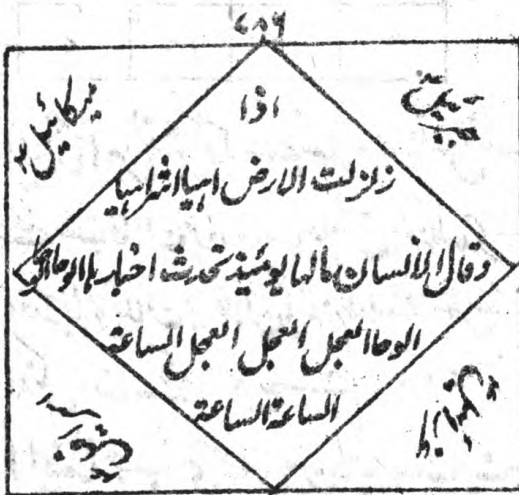 ۷۸۶
میکائیل
اذا
زلزلت الارض اہیا اشراہیا
وقال الانسان مالہا یومئیذ تحدث اخبارہا الوحا
الوحا العجل العجل العجل الساعة
الساعة الساعة